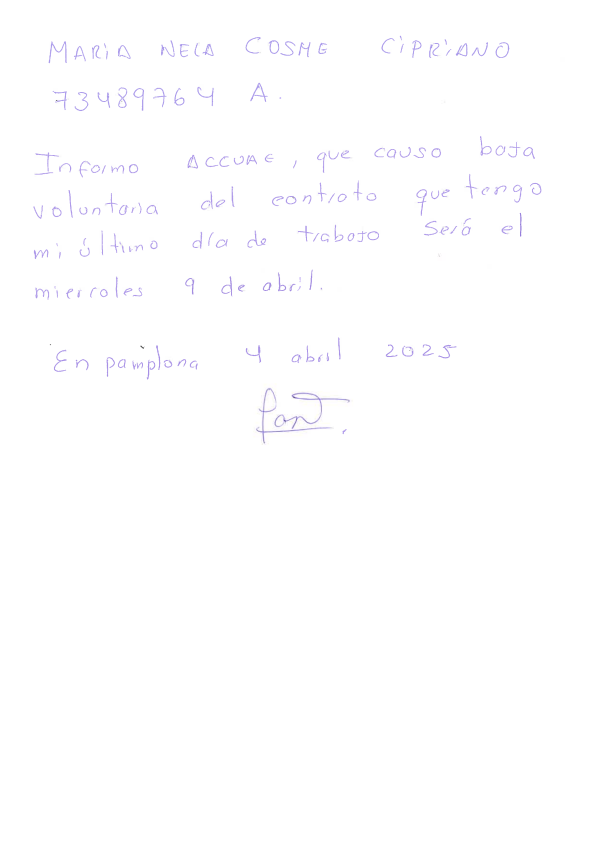 MARIA NELA COSME CIPRIANO
73489764 A.
Informo ACCUAE, que causo baja
voluntaria del contrato que tengo
mi último día de trabajo será el
miercoles 9 de abril.
En pamplona 4 abril 2025